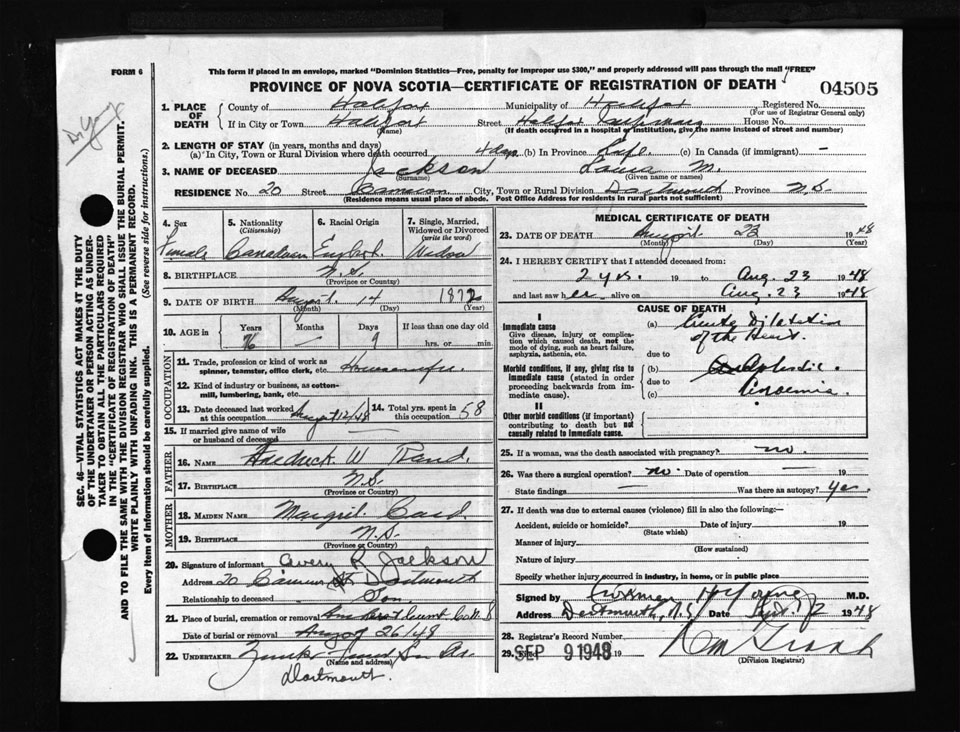 FORM 6
This form if placed in an envelope, marked "Dominion Statistics—Free, penalty for improper use $300," and properly addressed will pass through the mail "FREE"
PROVINCE OF NOVA SCOTIA—CERTIFICATE OF REGISTRATION OF DEATH
04505
1. PLACE OF DEATH
County of Halifax Municipality of Halifax Registered No.
(For use of Registrar General only)
If in City or Town Halifax Street Halifax Infirmary House No.
(Name) (If death occurred in a hospital or institution, give the name instead of street and number)
2. LENGTH OF STAY (in years, months and days)
(a) In City, Town or Rural Division where death occurred 4 days (b) In Province Life (c) In Canada (if immigrant) —
3. NAME OF DECEASED Jackson M.
(Surname) (Given name or names)
RESIDENCE No. 20 Street City, Town or Rural Division Dartmouth Province N.S.
(Residence means usual place of abode. Post Office Address for residents in rural parts not sufficient)
4. Sex
Female
5. Nationality
(Citizenship)
Canadian
6. Racial Origin
English
7. Single, Married, Widowed or Divorced
(write the word)
Widow
8. BIRTHPLACE N.S.
(Province or Country)
9. DATE OF BIRTH August 14 1872
(Month) (Day) (Year)
10. AGE in
Years Months Days If less than one day old
76 — 9 hrs. or min.
OCCUPATION
11. Trade, profession or kind of work as spinner, teamster, office clerk, etc. Housewife
12. Kind of industry or business, as cotton-mill, lumbering, bank, etc.
13. Date deceased last worked at this occupation August 12/48
14. Total yrs. spent in this occupation 58
15. If married give name of wife or husband of deceased
FATHER
16. NAME W. Rand.
17. BIRTHPLACE N.S.
(Province or Country)
MOTHER
18. MAIDEN NAME Card
19. BIRTHPLACE N.S.
(Province or Country)
20. Signature of informant Avery R. Jackson
Address 20 St Dartmouth
Relationship to deceased Son
21. Place of burial, cremation or removal Co. N.S
Date of burial or removal August 26/48
22. UNDERTAKER
(Name and address)
Dartmouth.
MEDICAL CERTIFICATE OF DEATH
23. DATE OF DEATH August 23 1948
(Month) (Day) (Year)
24. I HEREBY CERTIFY that I attended deceased from:
2 yrs. 19 to Aug. 23 1948
and last saw her alive on Aug. 23 1948
CAUSE OF DEATH
I
Immediate cause
Give disease, injury or complication which caused death, not the mode of dying, such as heart failure, asphyxia, asthenia, etc.
(a) Acute Dilatation of the Heart.
due to
Morbid conditions, if any, giving rise to immediate cause (stated in order proceeding backwards from immediate cause).
(b) Aplastic
due to
(c) Anaemia
II
Other morbid conditions (if important) contributing to death but not causally related to immediate cause.
25. If a woman, was the death associated with pregnancy? no.
26. Was there a surgical operation? no. Date of operation — 19
State findings — Was there an autopsy? Yes.
27. If death was due to external causes (violence) fill in also the following:—
Accident, suicide or homicide? Date of injury 19
(State which)
Manner of injury
(How sustained)
Nature of injury
Specify whether injury occurred in industry, in home, or in public place
Signed by M.D.
Address Dartmouth, N.S. Date Sept. 2 1948
28. Registrar's Record Number
29. Filed SEP 9 1948 19
(Division Registrar)
SEC. 46—VITAL STATISTICS ACT MAKES IT THE DUTY
OF THE UNDERTAKER OR PERSON ACTING AS UNDER-
TAKER TO OBTAIN ALL THE PARTICULARS REQUIRED
IN THE "CERTIFICATE OF REGISTRATION OF DEATH"
AND TO FILE THE SAME WITH THE DIVISION REGISTRAR WHO SHALL ISSUE THE BURIAL PERMIT.
WRITE PLAINLY WITH UNFADING INK. THIS IS A PERMANENT RECORD.
Every item of information should be carefully supplied. (See reverse side for instructions.)